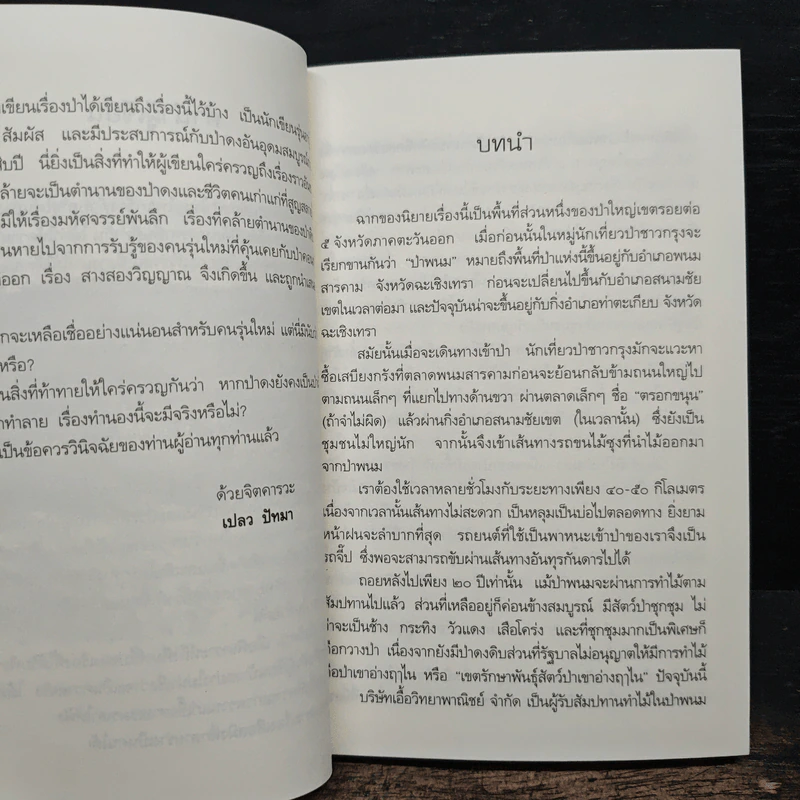 เขียนเรื่องป่าได้เขียนถึงเรื่องนี้ไว้บ้าง เป็นนักเขียนรุ่น
สัมผัส และมีประสบการณ์กับป่าดงอันอุดมสมบูรณ์
สิบปี นี่ยิ่งเป็นสิ่งที่ทำให้ผู้เขียนใคร่ครวญถึงเรื่องราว
คล้ายจะเป็นตำนานของป่าดงและชีวิตคนเก่าแก่ที่สูญ
มีให้เรื่องมหัศจรรย์พันลึก เรื่องที่คล้ายตำนานของป่าดง
หายไปจากการรับรู้ของคนรุ่นใหม่ที่คุ้นเคยกับป่า
ออก เรื่อง สางสองวิญญาณ จึงเกิดขึ้น และถูกนำ
จะเหลือเชื่ออย่างแน่นอนสำหรับคนรุ่นใหม่ แต่นี่
หรือ?
สิ่งที่ท้าทายให้ใคร่ครวญกันว่า หากป่าดงยังคงเป็น
ทำลาย เรื่องทำนองนี้จะมีจริงหรือไม่?
เป็นข้อควรวินิจฉัยของท่านผู้อ่านทุกท่านแล้ว
ด้วยจิตคารวะ
เปลว ปัทมา
บทนำ
ฉากของนิยายเรื่องนี้เป็นพื้นที่ส่วนหนึ่งของป่าใหญ่เขตรอยต่อ
๕ จังหวัดภาคตะวันออก เมื่อก่อนนั้นในหมู่นักเที่ยวป่าชาวกรุงจะ
เรียกขานกันว่า "ป่าพนม" หมายถึงพื้นที่ป่าแห่งนี้ขึ้นอยู่กับอำเภอพนม
สารคาม จังหวัดฉะเชิงเทรา ก่อนจะเปลี่ยนไปขึ้นกับอำเภอสนามชัย
เขตในเวลาต่อมา และปัจจุบันน่าจะขึ้นอยู่กับกิ่งอำเภอท่าตะเกียบ จังหวัด
ฉะเชิงเทรา
สมัยนั้นเมื่อจะเดินทางเข้าป่า นักเที่ยวป่าชาวกรุงมักจะแวะหา
ซื้อเสบียงกรังที่ตลาดพนมสารคามก่อนจะย้อนกลับข้ามถนนใหญ่ไป
ตามถนนเล็กๆ ที่แยกไปทางด้านขวา ผ่านตลาดเล็กๆ ชื่อ "ตรอกขนุน"
(ถ้าจำไม่ผิด) แล้วผ่านกิ่งอำเภอสนามชัยเขต (ในเวลานั้น) ซึ่งยังเป็น
ชุมชนไม่ใหญ่นัก จากนั้นจึงเข้าเส้นทางรถขนไม้ซุงที่นำไม้ออกมา
จากป่าพนม
เราต้องใช้เวลาหลายชั่วโมงกับระยะทางเพียง ๔๐-๕๐ กิโลเมตร
เนื่องจากเวลานั้นเส้นทางไม่สะดวก เป็นหลุมเป็นบ่อไปตลอดทาง ยิ่งยาม
หน้าฝนจะลำบากที่สุด รถยนต์ที่ใช้เป็นพาหนะเข้าป่าของเราจึงเป็น
รถจี๊ป ซึ่งพอจะสามารถขับผ่านเส้นทางอันทุรกันดารไปได้
ถอยหลังไปเพียง ๒๐ ปีเท่านั้น แม้ป่าพนมจะผ่านการทำไม้ตาม
สัมปทานไปแล้ว ส่วนที่เหลืออยู่ก็ค่อนข้างสมบูรณ์ มีสัตว์ป่าชุกชุม ไม่
ว่าจะเป็นช้าง กระทิง วัวแดง เสือโคร่ง และที่ชุกชุมมากเป็นพิเศษก็
คือกวางป่า เนื่องจากยังมีป่าดงดิบส่วนที่รัฐบาลไม่อนุญาตให้มีการทำไม้
คือป่าเขาอ่างฤๅไน หรือ "เขตรักษาพันธุ์สัตว์ป่าเขาอ่างฤๅไน" ปัจจุบันนี้
บริษัทเอื้อวิทยาพาณิชย์ จำกัด เป็นผู้รับสัมปทานทำไม้ในป่าพนม